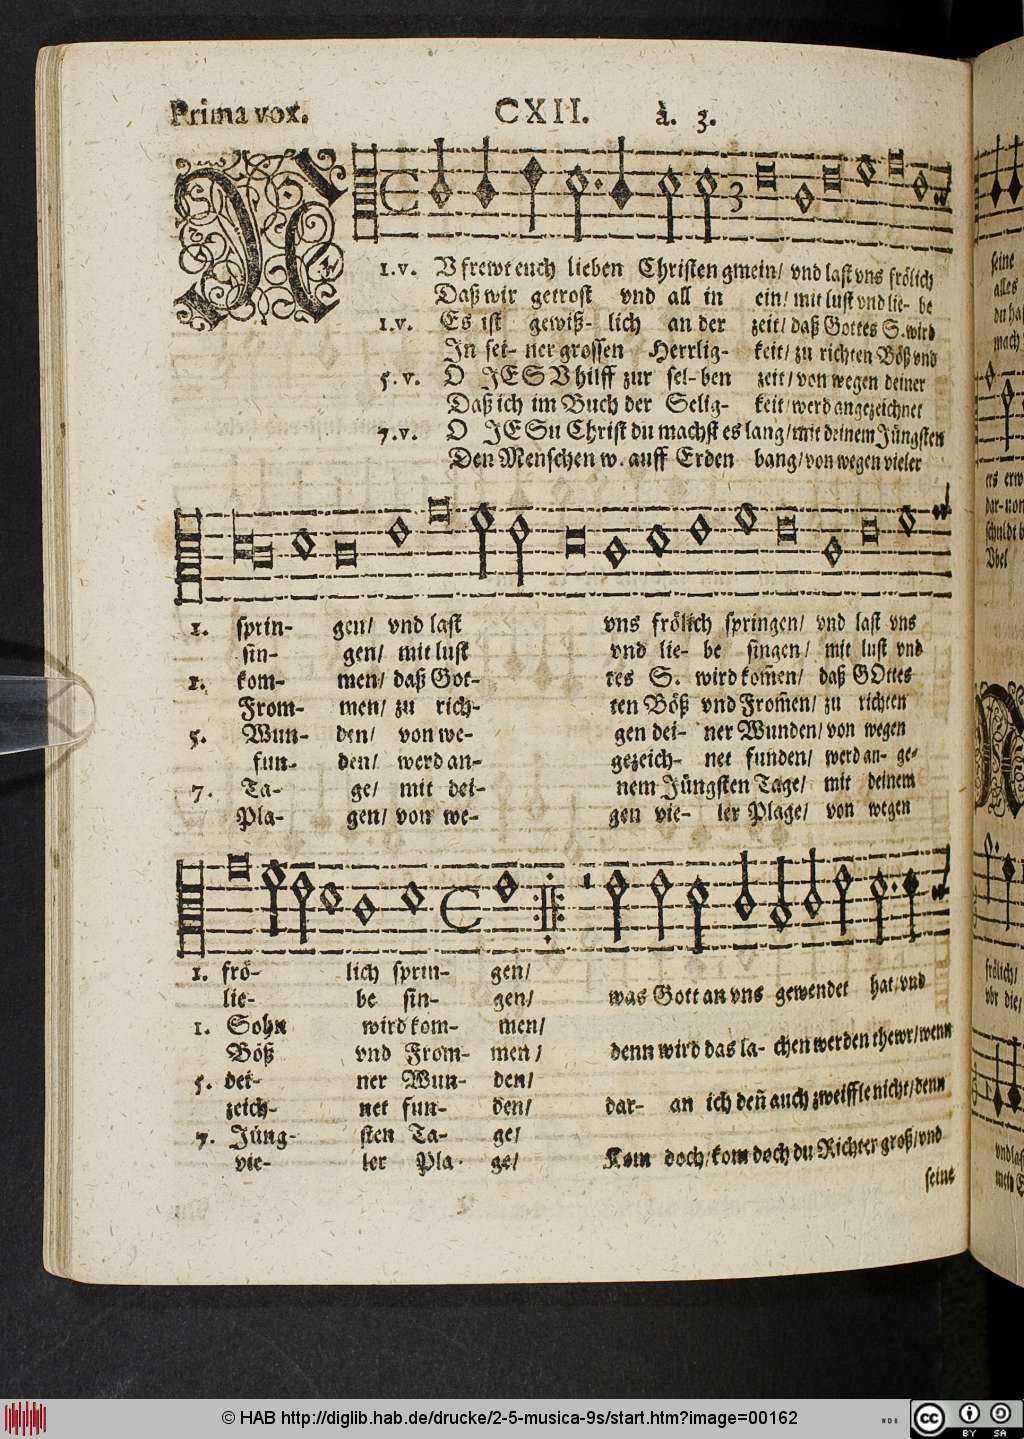 Prima vox. CXII. à. 3.
N
1.v. V frewt euch lieben Christen gmein/ vnd last vns frölich
Daß wir getrost vnd all in ein/ mit lust vnd lie- be
1.v. Es ist gewiß- lich an der zeit/ daß Gottes S. wird
In sei- ner grossen Herrlig- keit/ zu richten Böß vnd
5.v. O JESV hilff zur sel- ben zeit/ von wegen deiner
Daß ich im Buch der Selig- keit/ werd angezeichnet
7.v. O JESu Christ du machst es lang/ mit deinem Jüngsten
Den Menschen w. auff Erden bang/ von wegen vieler
1. sprin- gen/ vnd last vns frölich springen/ vnd last vns
sin- gen/ mit lust vnd lie- be singen/ mit lust vnd
1. kom- men/ daß Got- tes S. wird kom̃en/ daß GOttes
From- men/ zu rich- ten Böß vnd From̃en/ zu richten
5. Wun- den/ von we- gen dei- ner Wunden/ von wegen
fun- den/ werd an- gezeich- net funden/ werd an- ge-
7. Ta- ge/ mit dei- nem Jüngsten Tage/ mit deinem
Pla- gen/ von we- gen vie- ler Plage/ von wegen
1. frö- lich sprin- gen/
lie- be sin- gen/ was Gott an vns gewendet hat/ vnd
1. Sohn wird kom- men/
Böß vnd From- men/ denn wird das la- chen werden thewr/ wenn
5. dei- ner Wun- den/
zeich- net fun- den/ dar- an ich deñ auch zweiffle nicht/ denn
7. Jüng- sten Ta- ge/
vie- ler Pla- ge/ Kom doch/ kom doch du Richter groß/ vnd
seine
© HAB http://diglib.hab.de/drucke/2-5-musica-9s/start.htm?image=00162
cc BY SA